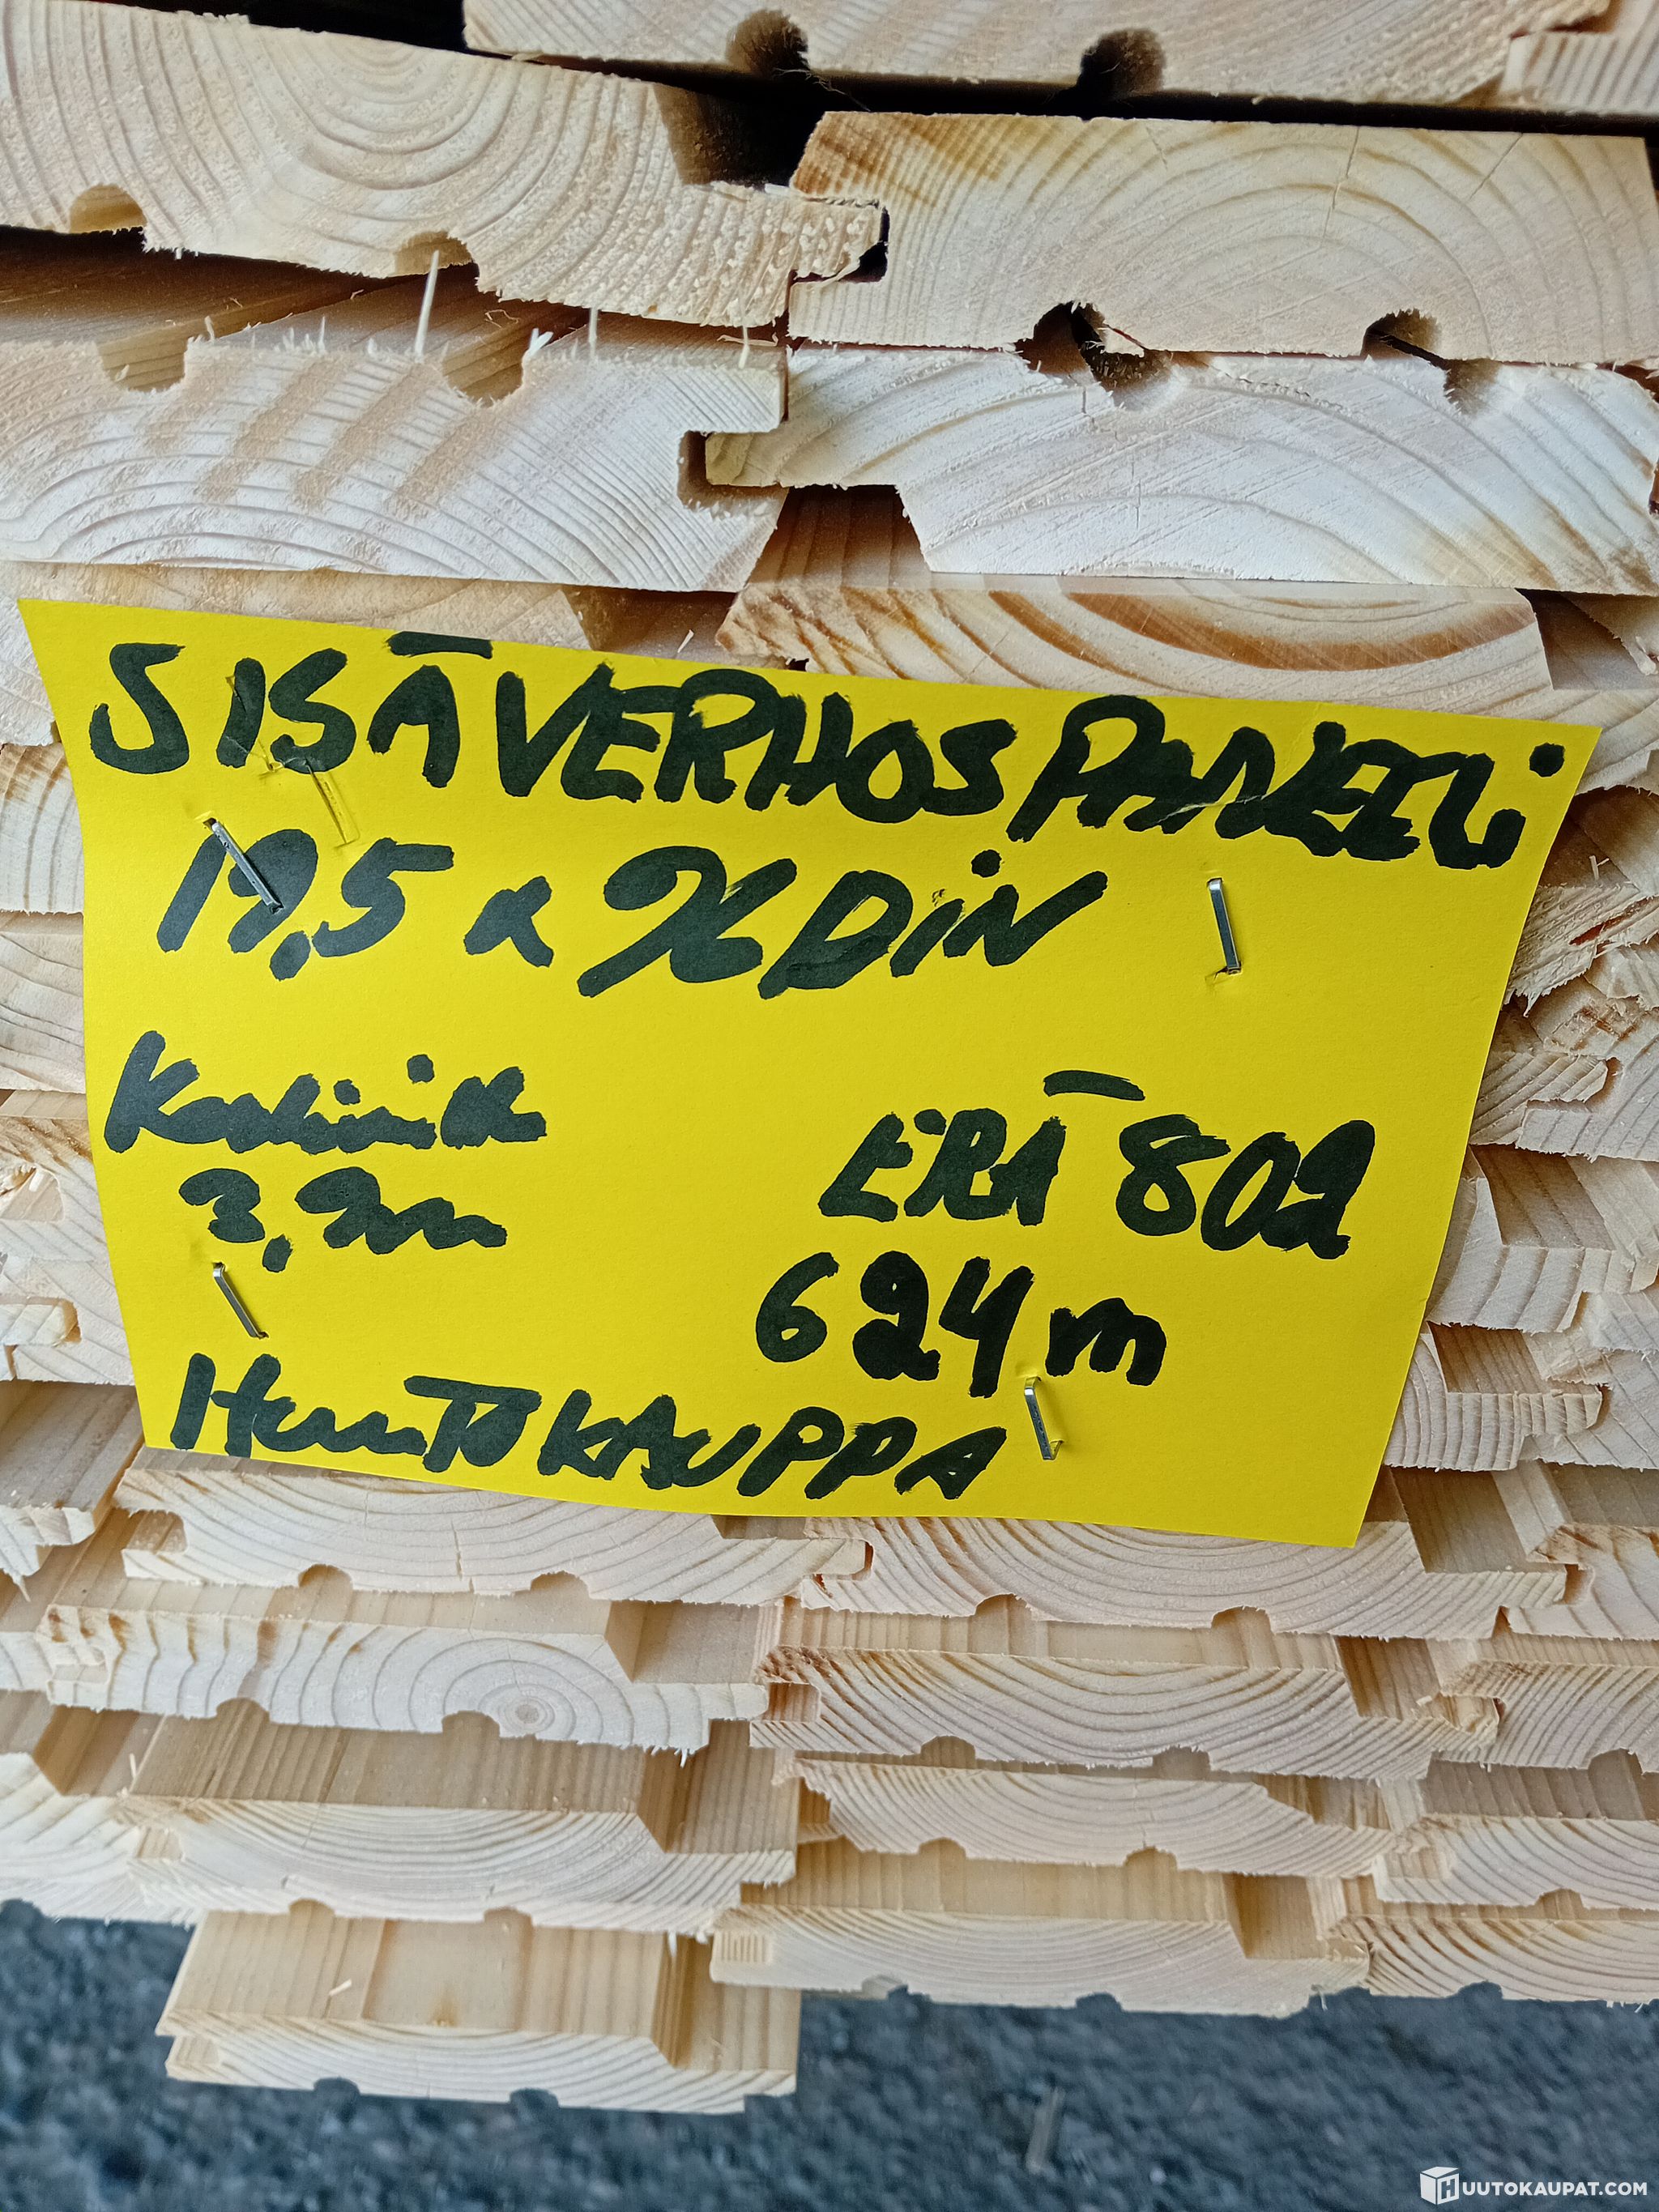 SISÄVERHOSPANELi
19,5 x 96 DiN
3,9m
ERÄ 802
624 m
HuuTOKAUPPA
HUUTOKAUPAT.COM